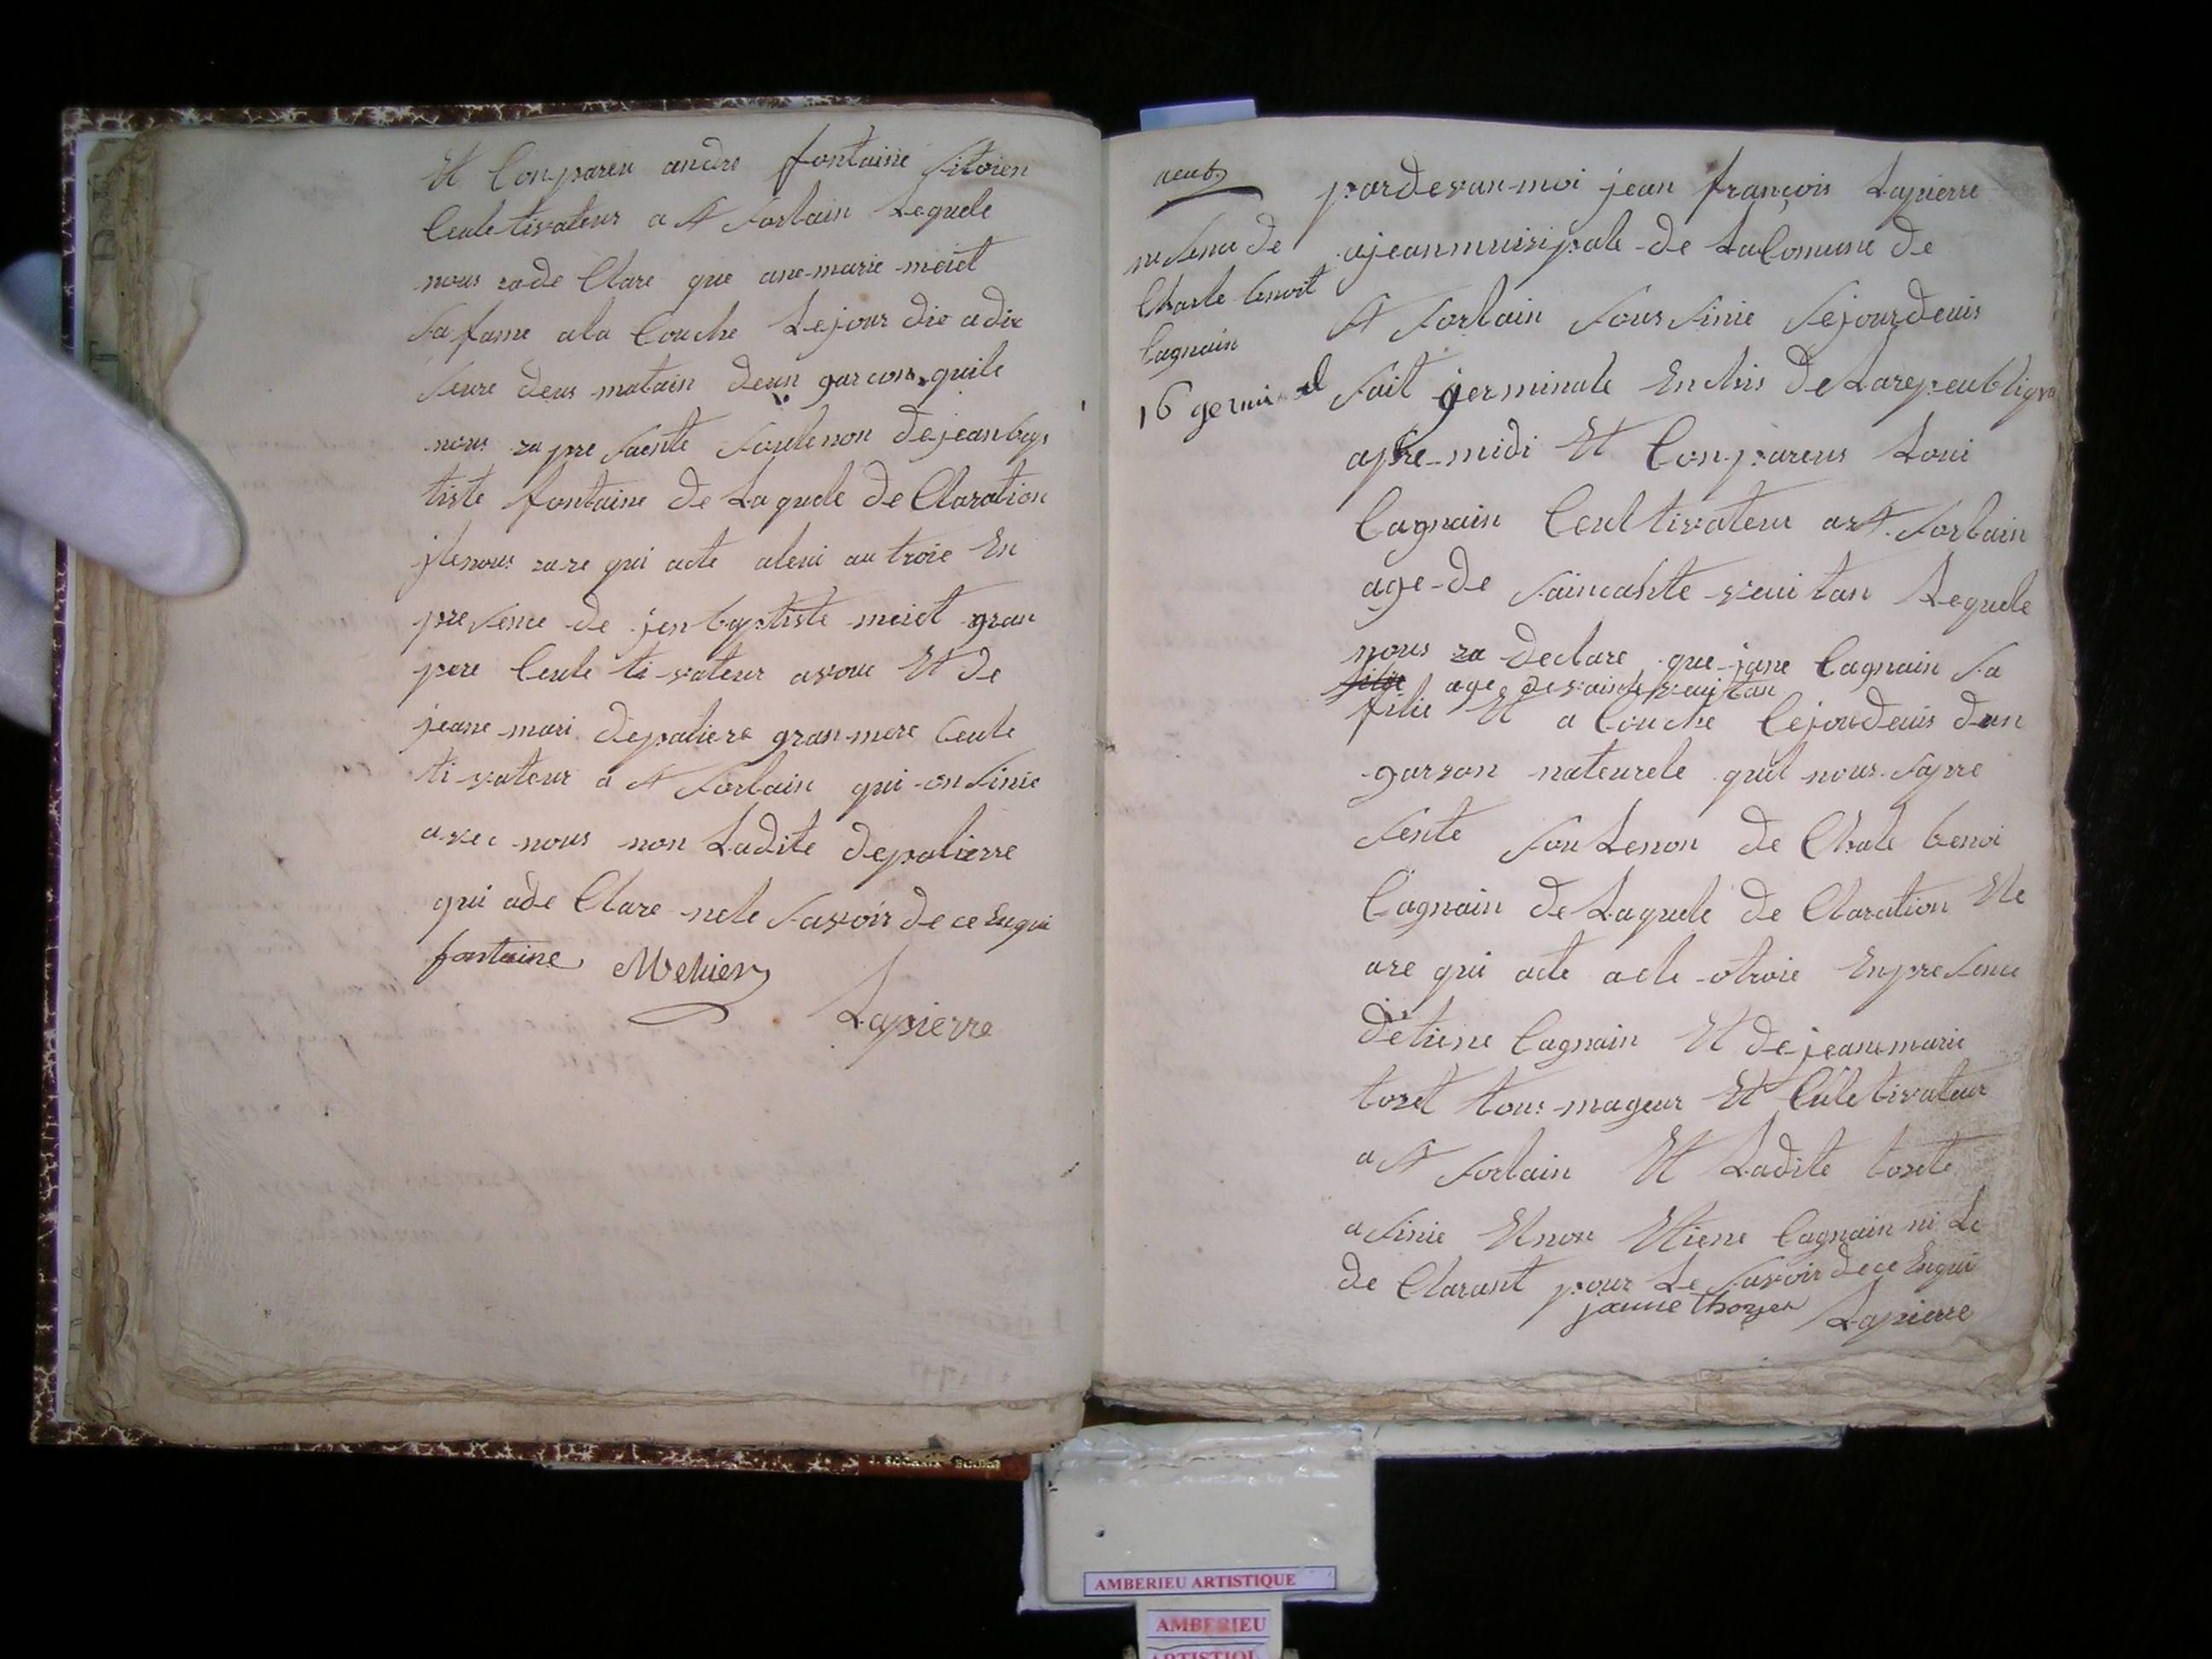 Et Conpareu andre fontaine sitoien
Ceuletivateur a St Sorlain Lequele
nous zade Clare que ane-marie meiet
sa fame ala Couche Lejour die a dix
seure deus matain deun garcon quile
nous za pre saente soulenon dejeanbap
tiste fontaine de Laquele de Claration
ilenous zare qui acte alui autroie En
presence de jen baptiste meiet gran
pere Ceule ti-vateur avoue Et de
jeane mari depaliere granmere Ceule
ti-vateur a St Sorlain qui on sinie
avec nous non Ladite depalierre
qui ade Clare nele savoir de ce Enqui
fontaine Mehier
Lapierre
neut
nesence de
Charle benoit
Cagnain
16 germinal
pardevan-moi jean françois Lapierre
ajeanmuisipale de LaComune de
St Sorlain soussinie sejourdeuis
sait jerminale En sis de Larepeubliqu
apre-midi Et Conpareus Loui
Cagnain Ceultivateur a St Sorlain
age-de saincante-veuitan Lequele
nous za declare que jane Cagnain sa
filie age de vainte veuitan
filie Et a Couche Cejourdeuis dun
garson naturele quil nous sapre
sente sou Lenon de Chale benoi
Cagnain de Laquele de Claration Ele
are qui acte a ele otroie Enpresence
detiene Cagnain Et de jeanemarie
toret tous mageur Et Culetivateur
a St Sorlain Et Ladite torete
a sinie Et non Etiene Cagnain ni Le
de Clarant pour Le savoir de ce Enqui
janne thoret Lapierre
AMBERIEU ARTISTIQUE
AMBERIEU
ARTISTIQUE